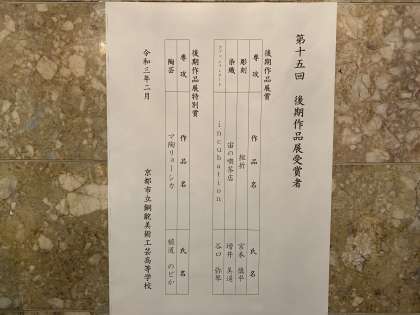 第十五回 後期作品展受賞者
後期作品展賞
専攻 作品名 氏名
彫刻 挫折
染織 宙の喫茶店 増井 美道
incubation 谷口 弥琴
後期作品展特別賞
専攻 作品名 氏名
陶芸 マ陶リョーシカ 植道 のどか
令和三年二月
京都市立銅駝美術工芸高等学校